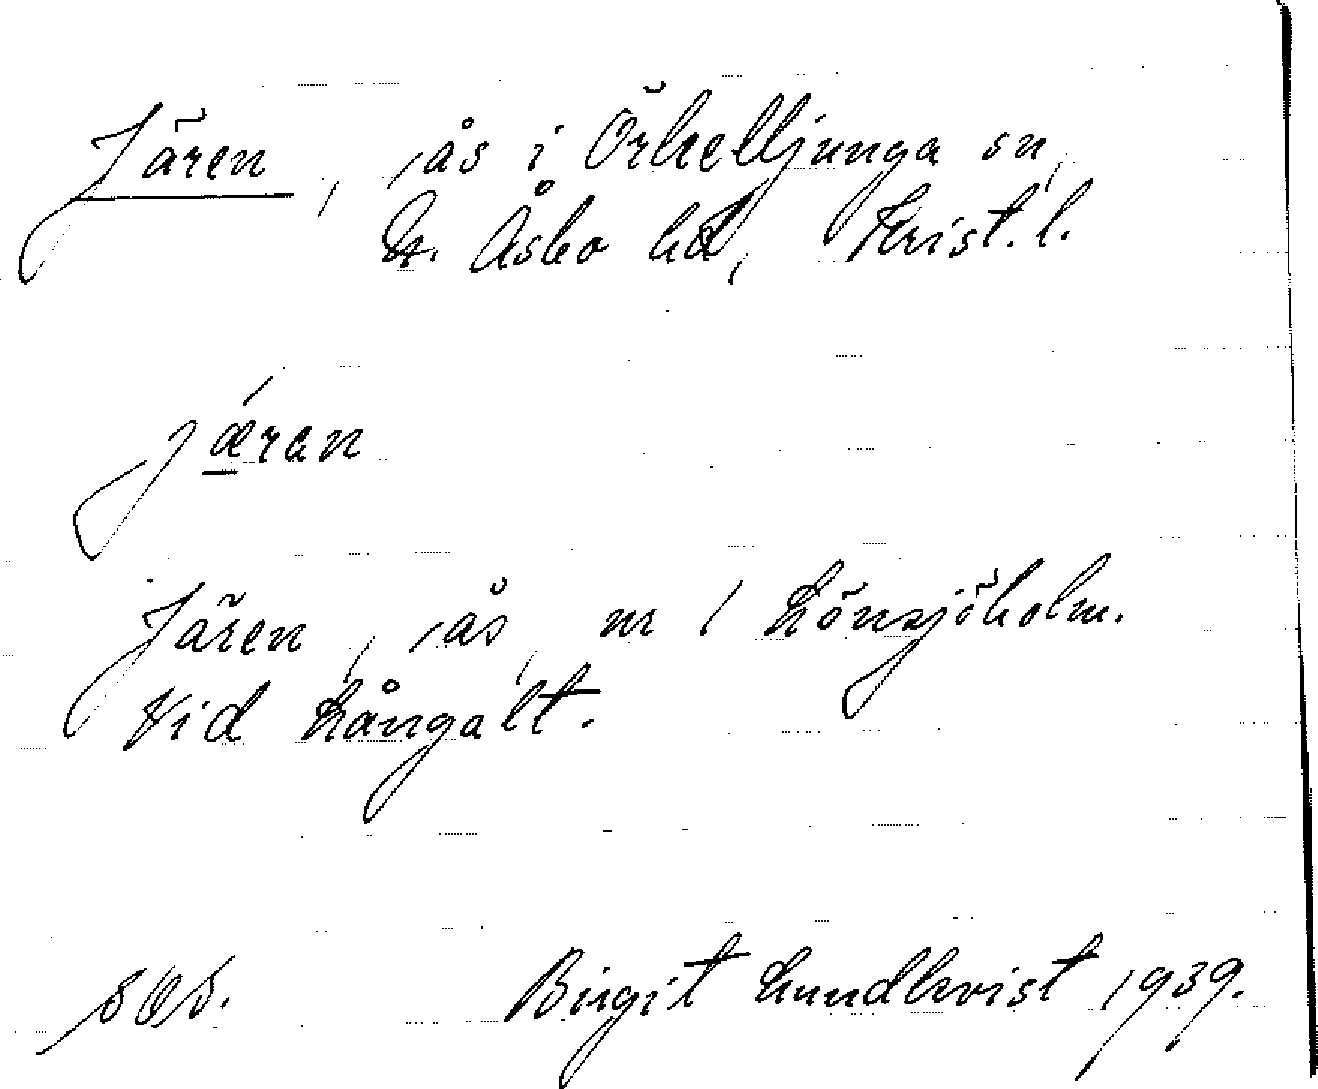 Jären, ås i Örkelljunga sn,
N. Åsbo hd, Krist. l.
jǽran
Jären, ås, nr 1 Lönsjöholm.
Vid Långalt.
Birgit Lundkvist 1939.